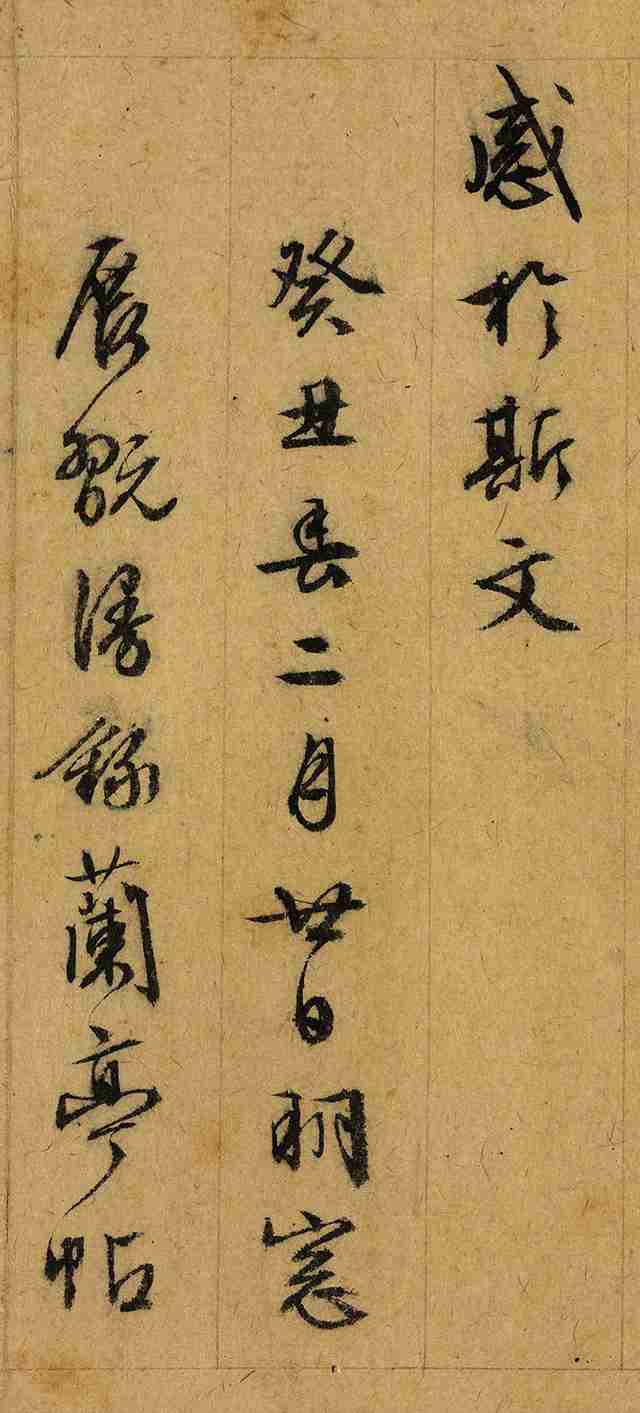 感於斯文
癸丑春二月廿日明窓
展翫漫録蘭亭帖